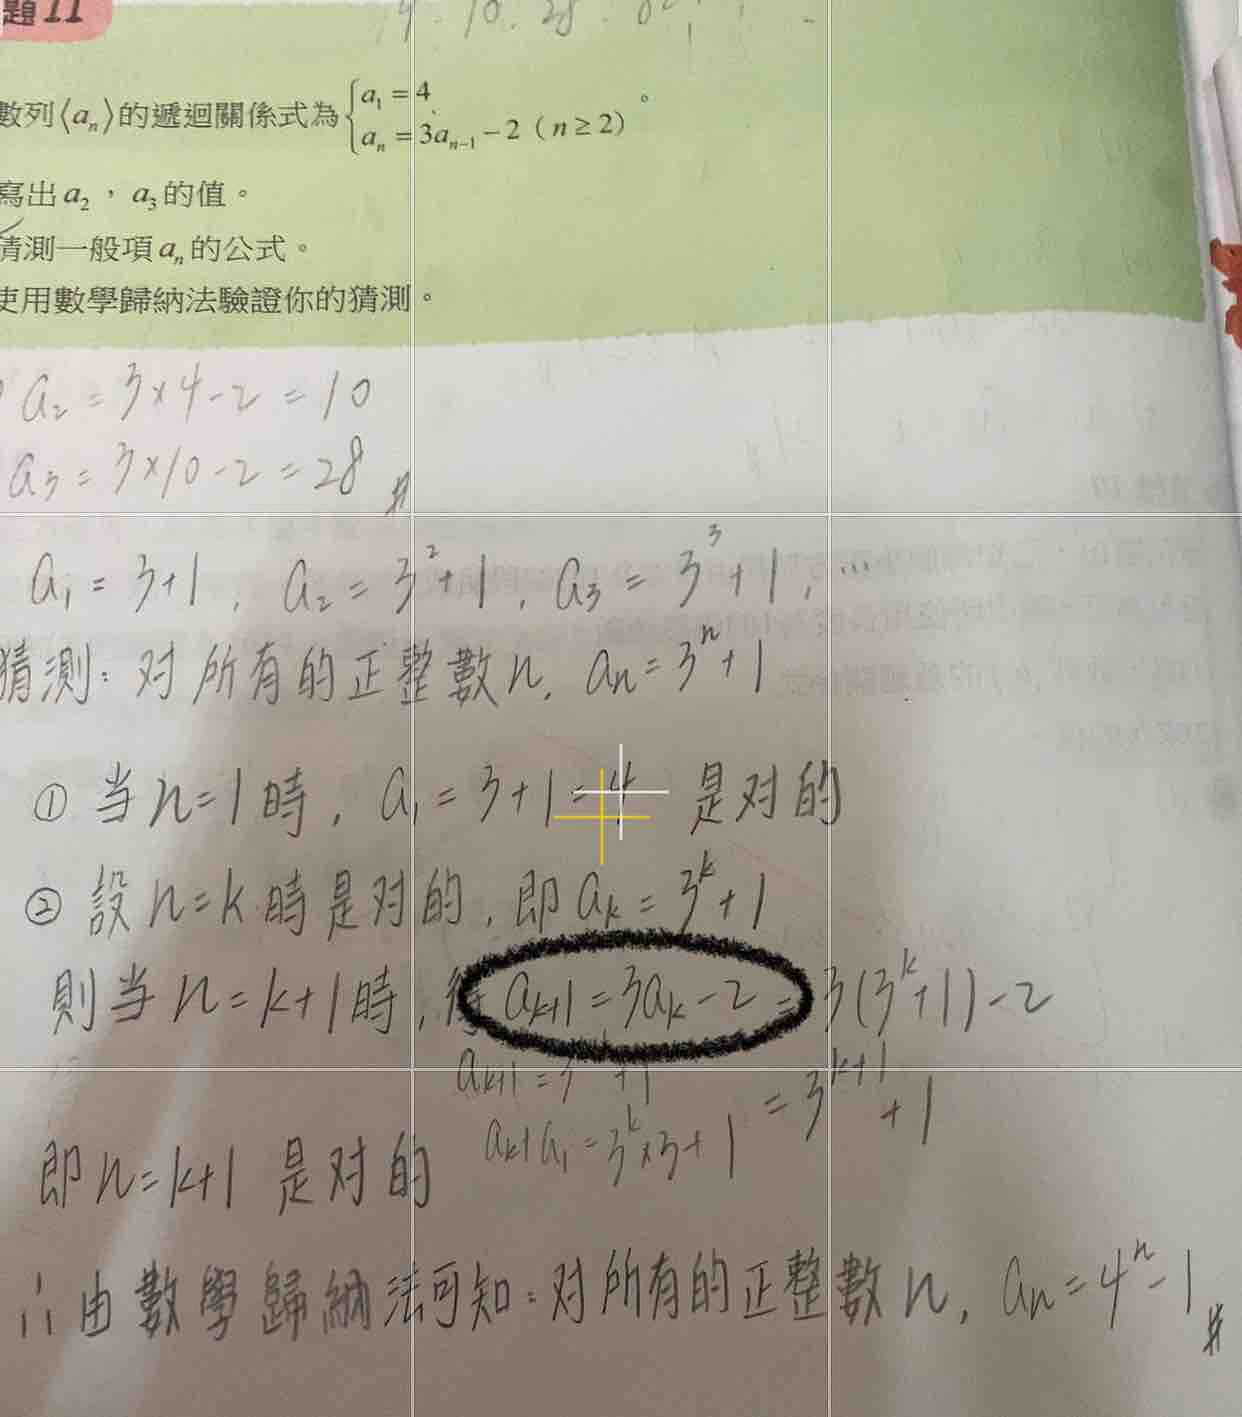 題11
4. 10. 28.
數列⟨aₙ⟩的遞迴關係式為 { a₁ = 4
aₙ = 3aₙ₋₁ − 2（n ≥ 2）。
寫出 a₂，a₃ 的值。
猜測一般項 aₙ 的公式。
使用數學歸納法驗證你的猜測。
a₂ = 3×4−2 = 10
a₃ = 3×10−2 = 28 #
a₁ = 3+1, a₂ = 3²+1, a₃ = 3³+1, ...
猜測：对所有的正整數n, aₙ = 3ⁿ+1
① 当n=1時, a₁ = 3+1 = 4 是对的
② 設n=k時是对的, 即 aₖ = 3ᵏ+1
則当n=k+1時, 得 aₖ₊₁ = 3aₖ−2 = 3(3ᵏ+1)−2
= 3ᵏ⁺¹+1
即n=k+1 是对的
∴由數學歸納法可知：对所有的正整數n, aₙ = 4ⁿ−1 #